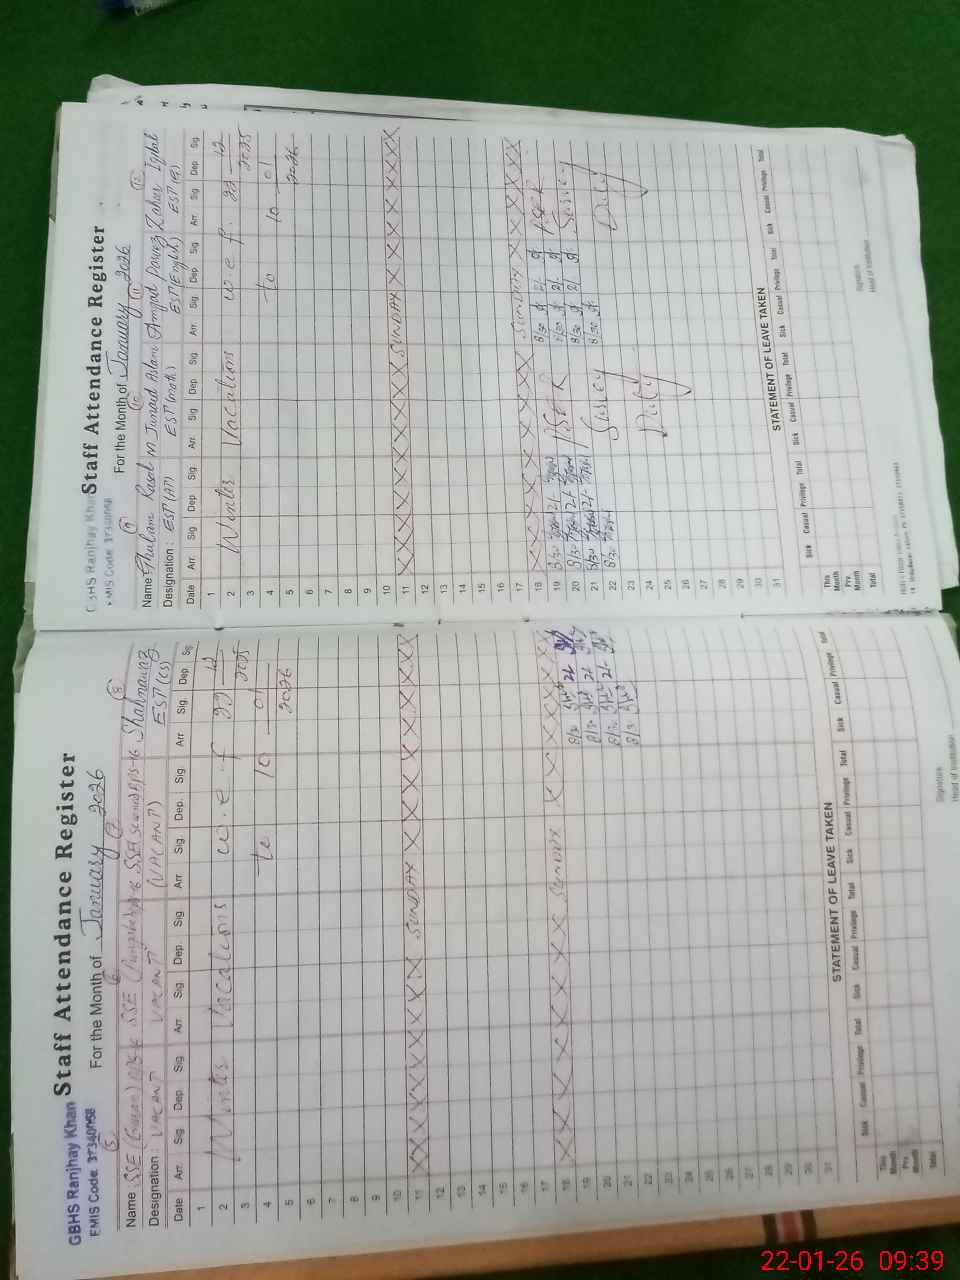 GBHS Ranjhay Khan Staff Attendance Register
EMIS Code 37340058
For the Month of January 2026
5 6 7 8
Name SSE SSE SSE Shahnawaz
Designation VACANT VACANT (VACANT) EST (CS)
Date Arr. Sig. Dep. Sig. Arr. Sig. Dep. Sig. Arr. Sig. Dep. Sig. Arr. Sig. Dep Sig.
1
2 Winter Vacations w.e.f 22 12
3 2025
4 to 10 01
5 2026
6
7
8
9
10
11 XXXXXXXX SUNDAY XXXXXXX
12
13
14
15
16
17
18 XXXXXXX SUNDAY XXXXXXX
19
20
21
22
23
24
25
26
27
28
29
30
31
8/30 2/-
8/30 2/-
8/30 2/-
8/30
STATEMENT OF LEAVE TAKEN
Sick Casual Privilege Total Sick Casual Privilege Total Sick Casual Privilege Total Sick Casual Privilege Total
This Month
Prv. Month
Total
Signature
Head of Institution
GBHS Ranjhay Khan Staff Attendance Register
EMIS Code 37340058
For the Month of January 2026
9 10 11 12
Name: Ghulam Rasool M Junaid Aslam Amjad Pervez Zafar Iqbal
Designation: EST (AT) EST (math) EST (English) EST (CS)
Date Arr. Sig Dep Sig Arr. Sig Dep Sig. Arr. Sig. Dep Sig. Arr. Sig. Dep Sig.
1
2 Winter Vacations w.e.f. 22 12
3 2025
4 to 10 01
5 2026
6
7
8
9
10
11 XXXXXXXX SUNDAY XXXXXXX
12
13
14
15
16
17
18 XXXXXXXX SUNDAY XXXXXX
19 8/30 2/- PSER 8/30 2/- PSER
20 8/30 2/- Survey 8/30 2/- Survey
21 8/30 2/- Duty 8/30 2/- Duty
22 8/30 8/30
23
24
25
26
27
28
29
30
31
STATEMENT OF LEAVE TAKEN
Sick Casual Privilege Total Sick Casual Privilege Total Sick Casual Privilege Total Sick Casual Privilege Total
This Month
Prv. Month
Total
Signature
Head of Institution
22-01-26 09:39